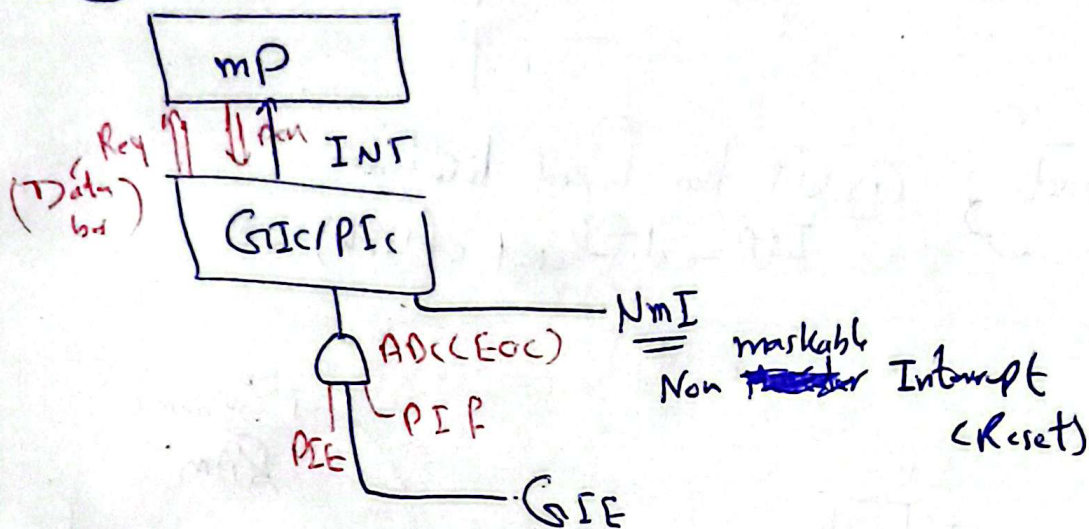 mP
Req
INT
(Data
bus)
GIC/PIC
NmI
ADC(EOC)
maskable
Non Interrupt
(Reset)
PIF
PIE
GIE